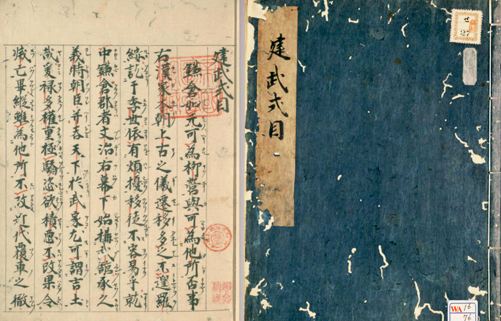 建武式目
鎌倉如元可為柳営歟可為他所否事
右漢家本朝上古之儀遷移多之不遑羅
縷訖于季世依有煩擾移徙不容易乎就
中鎌倉郡者文治右幕下始構武館承久
義時朝臣并呑天下於武家尤可謂吉土
哉爰禄多権重極驕恣欲積悪不改果令
滅亡畢縦雖為他所不改近代覆車之轍
建武式目
WA 16
76